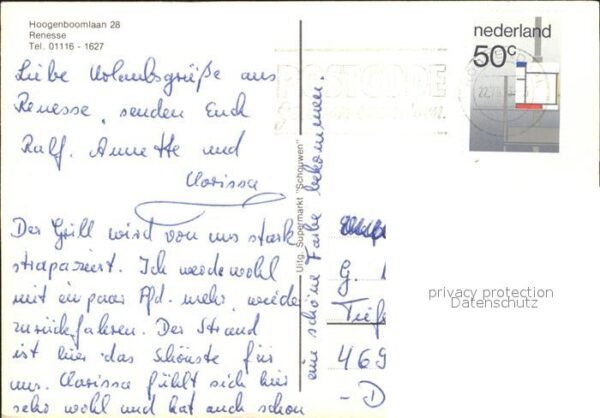 Hoogenboomlaan 28
Renesse
Tel. 01116 - 1627
nederland
50c
POSTCODE
Liebe Urlaubsgrüße aus
Renesse, senden Euch
Ralf, Annette und
Clarissa
Der Grill wird von uns stark
strapaziert. Ich werde wohl
mit ein paar Pfd. mehr, wieder
zurückfahren. Der Strand
ist hier das Schönste für
uns. Clarissa fühlt sich hier
sehr wohl und hat auch schon
eine schöne Farbe bekommen
Uitg. Supermarkt "Schouwen"
G.
Tief
469
- D
privacy protection
Datenschutz